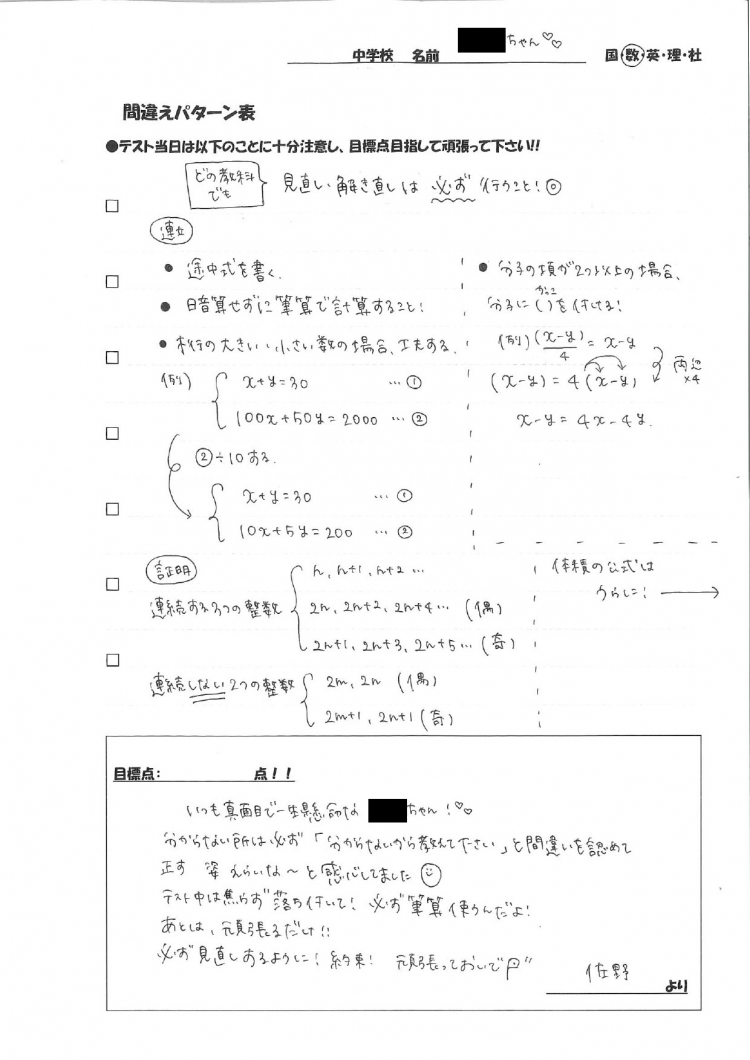 ちゃん♡♡
中学校 名前 国・数・英・理・社
間違えパターン表
●テスト当日は以下のことに十分注意し、目標点目指して頑張って下さい!!
どの教科でも 見直し、解き直しは必ず行うこと!◎
連立
● 途中式を書く。
● 暗算せずに筆算で計算すること!
● 桁の大きい・小さい数の場合、工夫する。
(例) x+y=30 …①
100x+50y=2000 …②
②÷10する。
x+y=30 …①
10x+5y=200 …②
● 分子の項が2つ以上の場合、
かっこ
分子に( )を付ける!
(例) (x-y)/4 = x-y
(x-y) = 4(x-y) 両辺×4
x-y = 4x-4y.
証明
連続する3つの整数
n, n+1, n+2 …
2n, 2n+2, 2n+4 … (偶)
2n+1, 2n+3, 2n+5 … (奇)
連続しない2つの整数
2m, 2n (偶)
2m+1, 2n+1 (奇)
体積の公式は
うらに! →
目標点: 点!!
いつも真面目で一生懸命な ちゃん!♡♡
分からない所は必ず「分からないから教えて下さい」と間違いを認めて
正す 姿 えらいな~と感心してました
テスト中は焦らず落ち付いて! 必ず筆算使うんだよ!
あとは、頑張るだけ!!
必ず見直しするように! 約束! 頑張っておいで
佐野 より